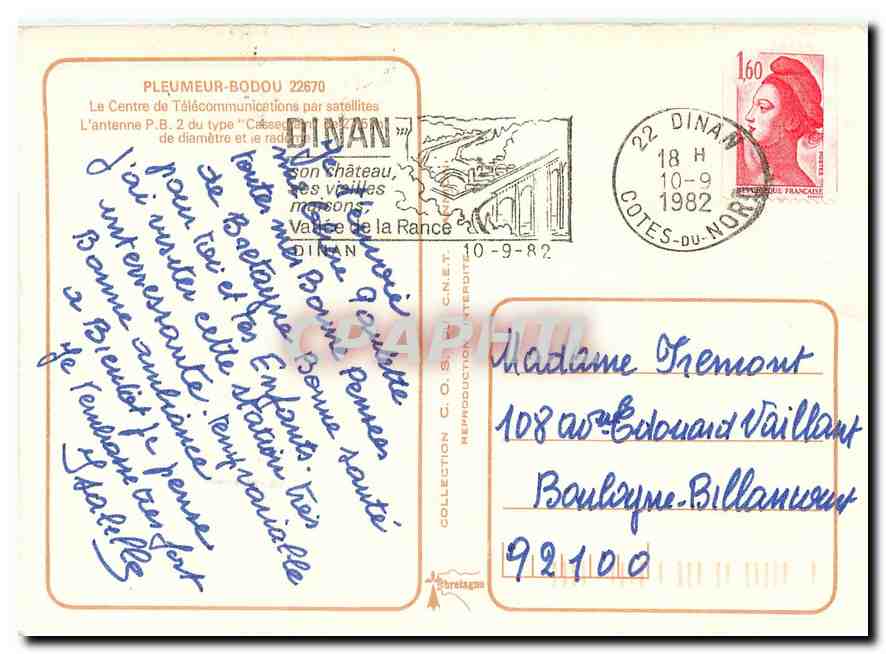 PLEUMEUR-BODOU 22670
Le Centre de Télécommunications par satellites
L'antenne P.B. 2 du type "Cassegrain" de
de diamètre et le radome
DINAN
son château,
ses vieilles
maisons,
Vallée de la Rance
DINAN 10-9-82
22 DINAN
18 H
10-9
1982
COTES-DU-NORD
1,60
POSTES
REPUBLIQUE FRANÇAISE
Je t'envoie
ma Petite Paulette
toutes mes Bonne Pensées
de Bretagne, Bonne santé
pour toi et tes Enfants. Très
j'ai visiter cette station
interressante. temp variable
Bonne ambiance
a Bientôt je pense
Je t'embrasse très fort
Isabelle
COLLECTION C.O.S. C.N.E.T.
REPRODUCTION INTERDITE
bretagne
CPAPHIL
Madame Tremont
108 avnue Edouard Vaillant
Boulogne-Billancourt
92100